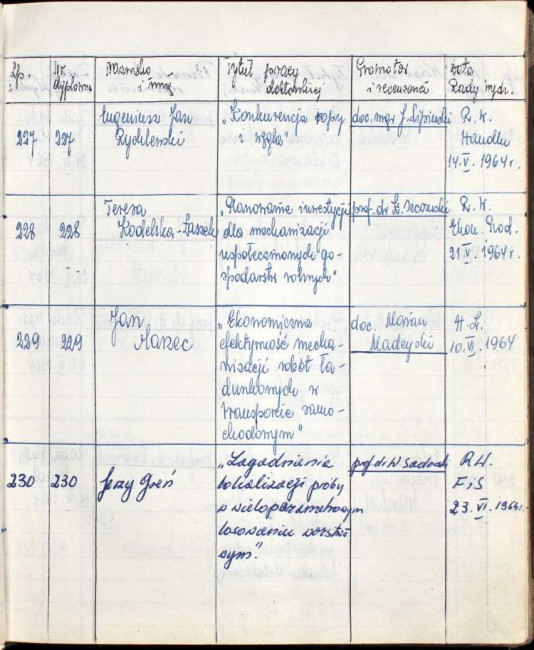 Lp.
Nr dyplomu
Nazwisko i imię
Tytuł pracy doktorskiej
Promotor i recenzenci
Data Rady Wydz.
227
227
Eugeniusz Jan
Rychlewski
„Konkurencja ropy
i węgla"
doc. mgr J. Lipiński
R. W.
Handlu
14. V. 1964 r.
228
228
Teresa
„Planowanie inwestycji
dla mechanizacji
uspołecznionych go-
spodarstw rolnych"
prof. dr K. Secomski
R. W.
Ekon. Prod.
21 V. 1964 r.
229
229
Jan
Marzec
„Ekonomiczna
efektywność mecha-
nizacji robót ła-
dunkowych w
transporcie samo-
chodowym"
doc. Marian
Madeyski
10. VI. 1964
230
230
Jerzy Greń
„Zagadnienia
lokalizacji próby
w wieloparametrowym
losowaniu warstwo-
wym".
prof. dr W. Sadowski
R.W.
F i S
23. VI. 1964 r.